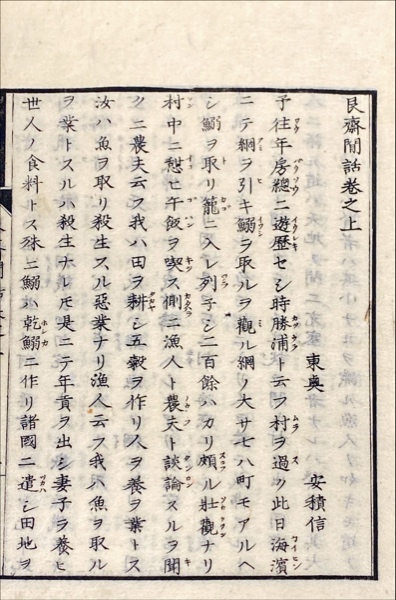 艮齋閒話卷之上
東奥 安積信
予往年房總ニ遊歷セシ時勝浦ト云フ村ヲ過ク此日海濱
ニテ網ヲ引キ鰯ヲ取ルヲ觀ル網ノ大サ七八町モアルヘ
シ鰯ヲ取リ籠ニ入レ列子シ二百餘ハカリ頗ル壯觀ナリ
村中ニ憩ヒ午飯ヲ喫ス側ニ漁人ト農夫ト談論スルヲ聞
クニ農夫云フ我ハ田ヲ耕シ五穀ヲ作リ人ヲ養フヲ業トス
汝ハ魚ヲ取リ殺生スル惡業ナリ漁人云フ我ハ魚ヲ取ル
ヲ業トスルハ殺生ナレ𪜈是ニテ年貢ヲ出シ妻子ヲ養ヒ
世人ノ食料トス殊ニ鰯ハ乾鰯ニ作リ諸國ニ遣シ田地ヲ